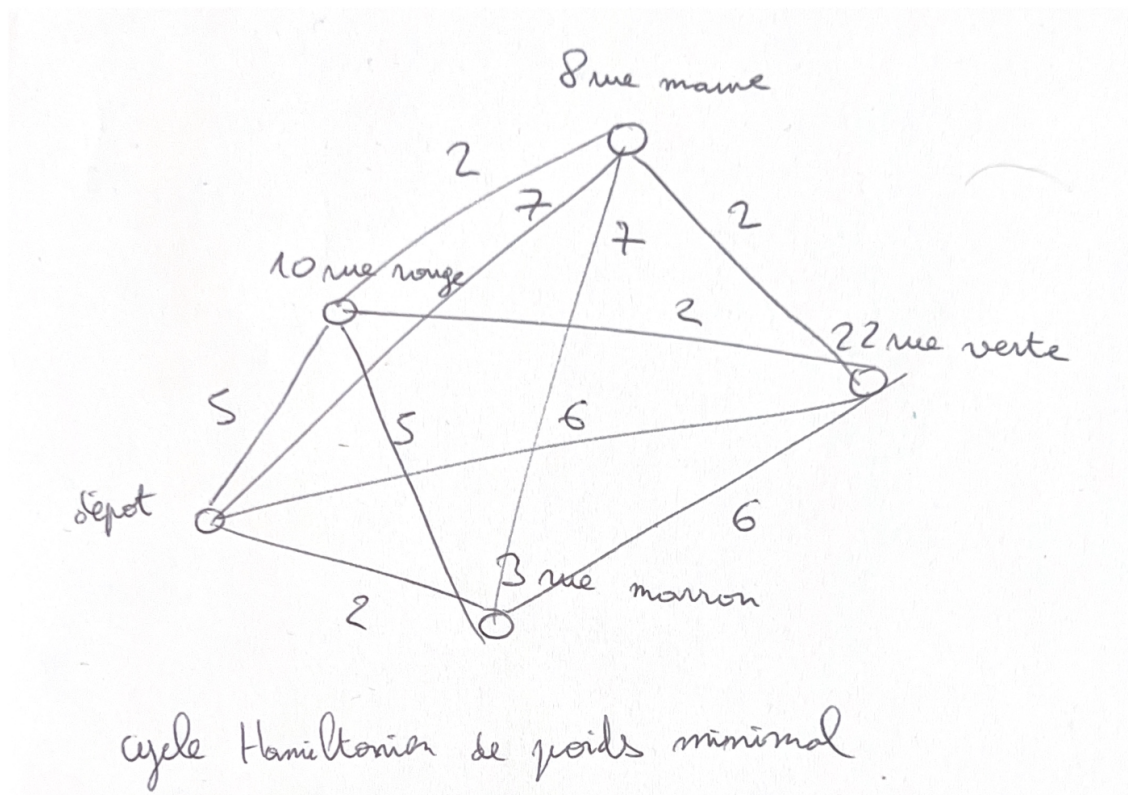 8 rue mauve
2
7
7
2
10 rue rouge
2
22 rue verte
5
5
6
dépot
6
3 rue marron
2
cycle Hamiltonien de poids minimal